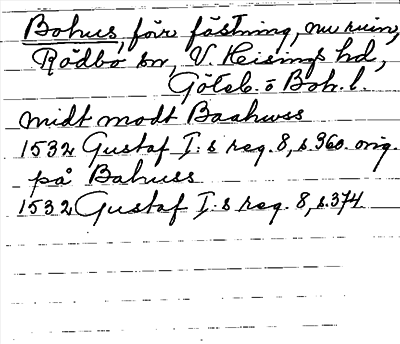 Bohus, förr fästning, nu ruin,
Rödbo sn, V. Hisings hd,
Göteb. o Boh. l.
midt modt Baahwss
1532 Gustaf I:s reg. 8, s. 360. orig.
på Bahuss
1532 Gustaf I:s reg. 8, s. 374